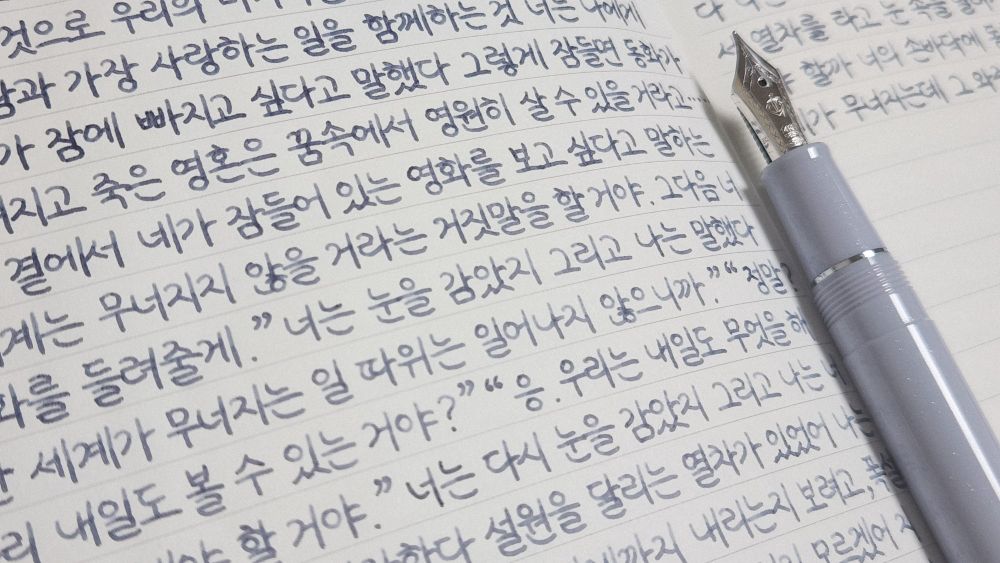 것으로 우리의
가장 사랑하는 일을 함께하는 것 너는 나에게
가 잠에 빠지고 싶다고 말했다 그렇게 잠들면 동화가
지고 죽은 영혼은 꿈속에서 영원히 살 수 있을 거라고…
곁에서 네가 잠들어 있는 영화를 보고 싶다고 말하는
계는 무너지지 않을 거라는 거짓말을 할 거야. 그다음 너
화를 들려줄게.” 너는 눈을 감았지 그리고 나는 말했다
세계가 무너지는 일 따위는 일어나지 않으니까.” “정말?
리 내일도 볼 수 있는 거야?” “응. 우리는 내일도 무엇을 하
할 거야.” 너는 다시 눈을 감았지 그리고 나는
하다 설원을 달리는 열차가 있었어 나는
까지 내리는지 보려고,
모르겠어
다
서 열차를 타고 눈 속을
할까 너의 손바닥에
가 무너지는데 그